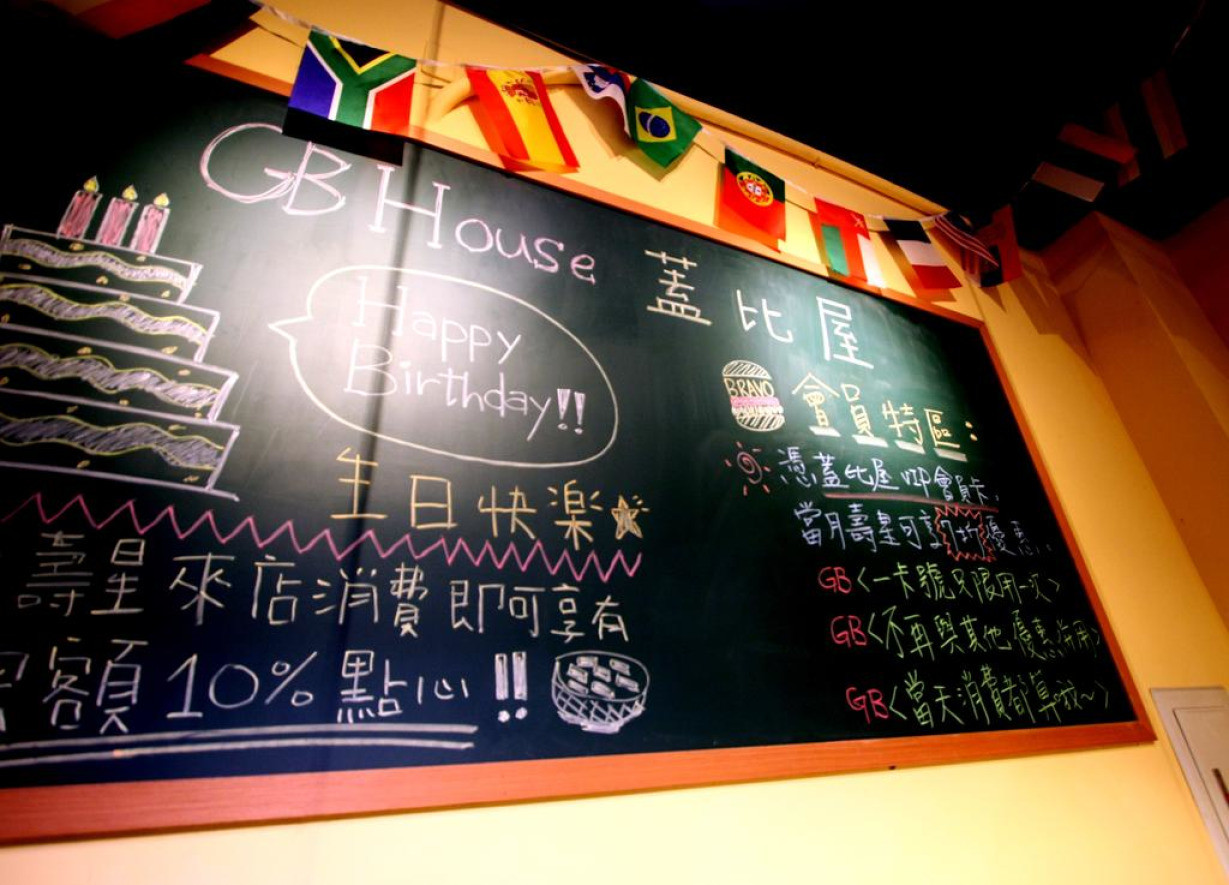 GB House 蓋比屋
Happy
Birthday!!
生日快楽
壽星來店消費即可享有
客額10%點心!!
BRAVO
會員特區:
憑蓋比屋VIP會員卡,
當月壽星可享7折優惠..
GB<一卡號只限用一次>
GB<不再與其他優惠併用>
GB<當天消費都算哦~>